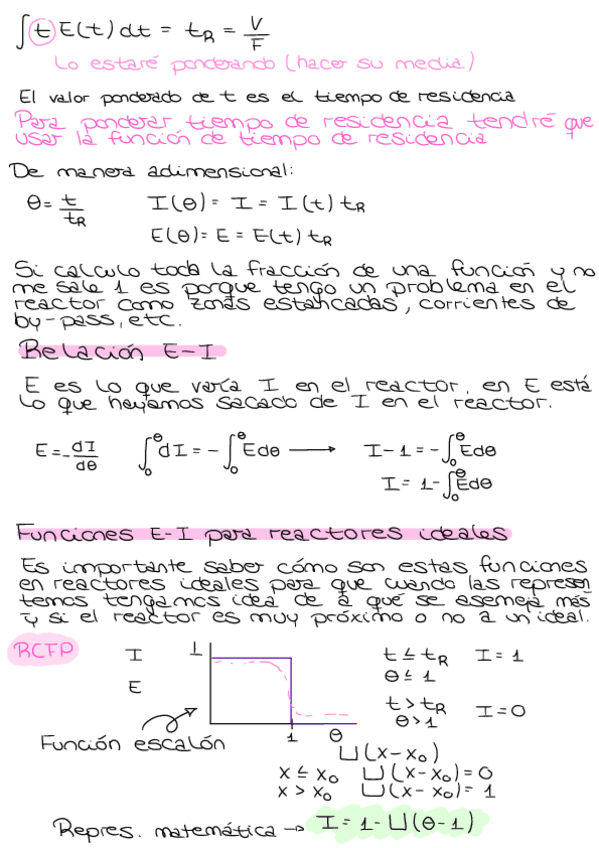 ∫ t E(t) dt = tR = V/F
Lo estaré ponderando (hacer su media)
El valor ponderado de t es el tiempo de residencia
Para ponderar tiempo de residencia tendré que
usar la función de tiempo de residencia
De manera adimensional:
θ = t/tR    I(θ) = I = I(t) tR
E(θ) = E = E(t) tR
Si calculo toda la fracción de una función y no
me sale 1 es porque tengo un problema en el
reactor como zonas estancadas, corrientes de
by-pass, etc.
Relación E-I
E es lo que varía I en el reactor, en E está
lo que hayamos sacado de I en el reactor.
E = - dI/dθ    ∫₀^θ dI = - ∫₀^θ E dθ ⟶ I - 1 = - ∫₀^θ E dθ
I = 1 - ∫₀^θ E dθ
Funciones E-I para reactores ideales
Es importante saber cómo son estas funciones
en reactores ideales para que cuando las represen
temos tengamos idea de a qué se asemeja más
y si el reactor es muy próximo o no a un ideal.
RCFP    I    1    t ≤ tR    I = 1
E    θ ≤ 1
t > tR    I = 0
θ > 1
Función escalón    1    θ
⊔(x-x₀)
x ≤ x₀    ⊔(x-x₀) = 0
x > x₀    ⊔(x-x₀) = 1
Repres. matemática → I = 1 - ⊔(θ-1)